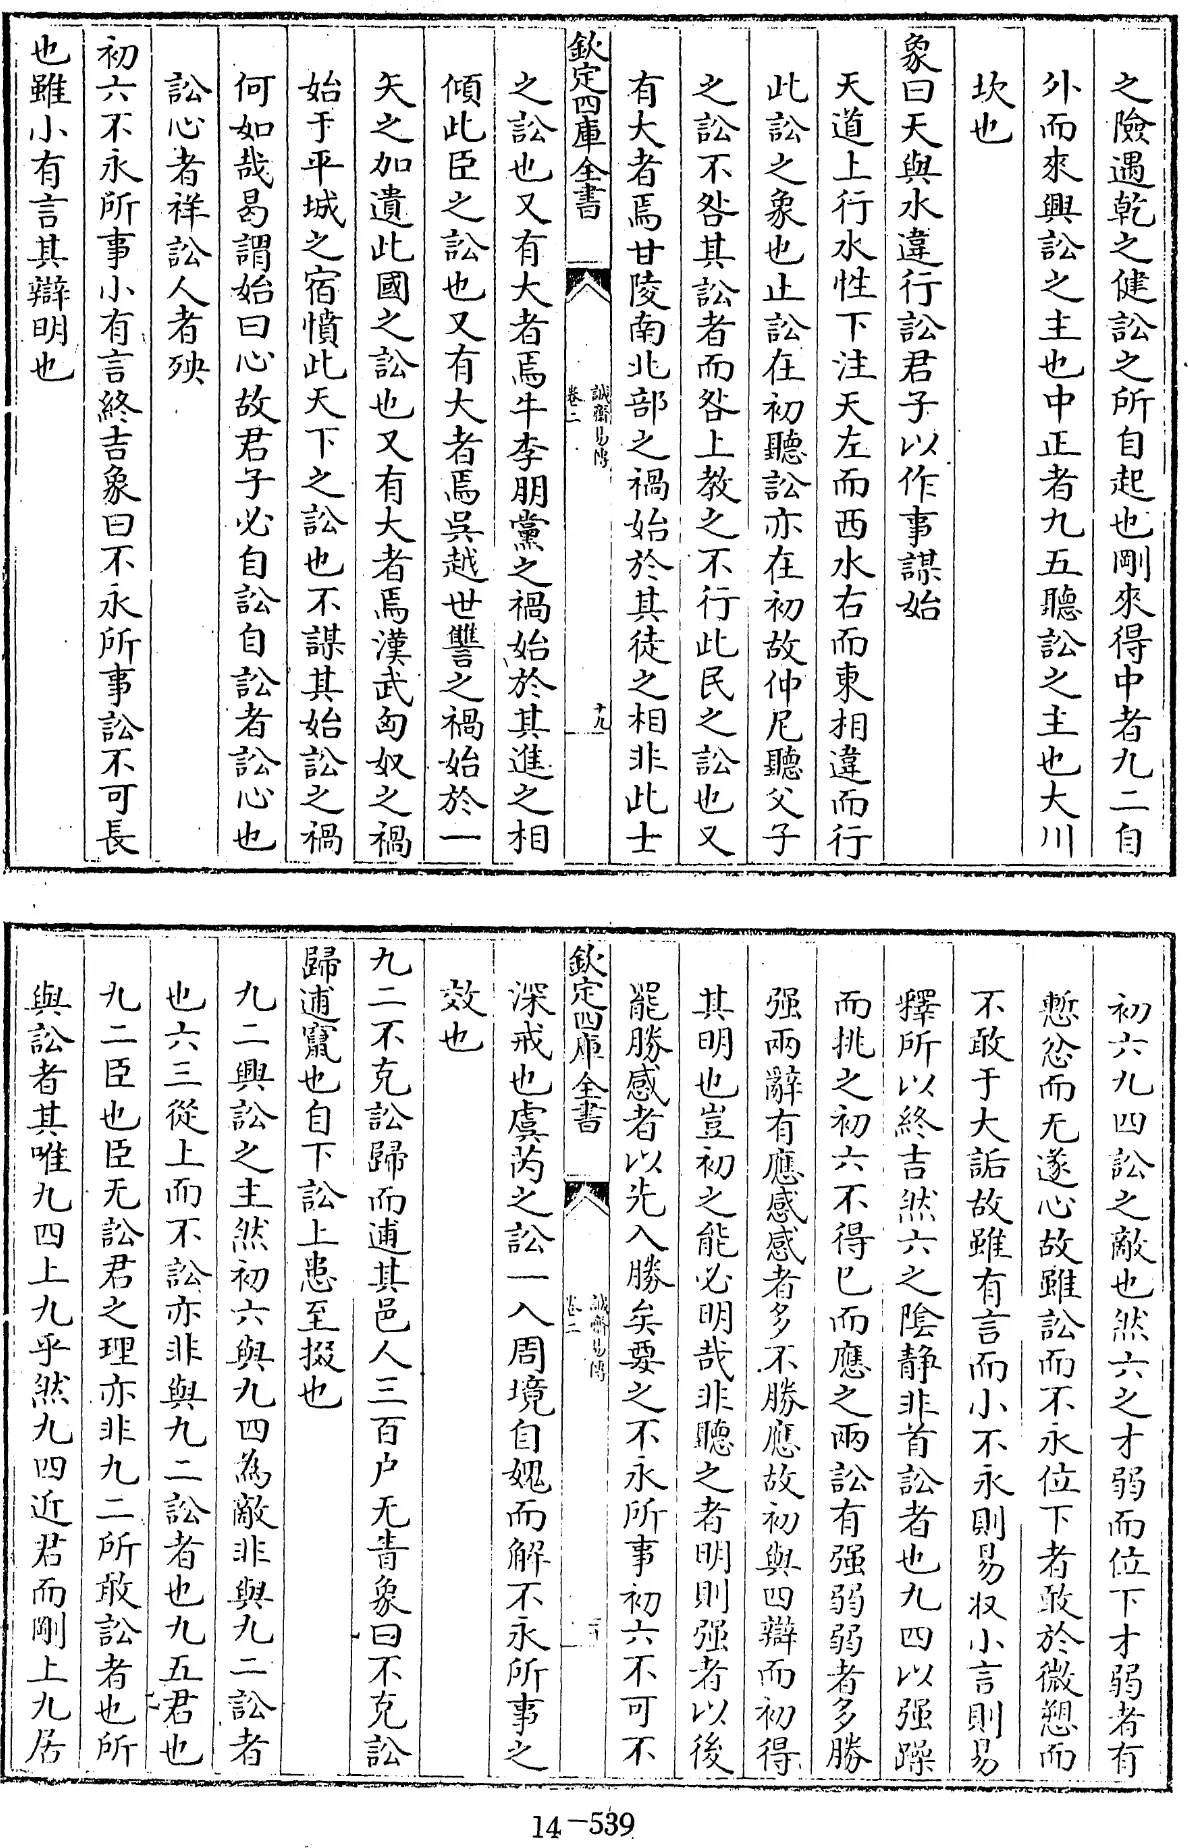 之險遇乾之健訟之所自起也剛來得中者九二自
外而來興訟之主也中正者九五聽訟之主也大川
坎也
象曰天與水違行訟君子以作事謀始
天道上行水性下注天左而西水右而東相違而行
此訟之象也止訟在初聽訟亦在初故仲尼聽父子
之訟不咎其訟者而咎上教之不行此民之訟也又
有大者焉甘陵南北部之禍始於其徒之相非此士
欽定四庫全書
誠齋易傳
卷二
十九
之訟也又有大者焉牛李朋黨之禍始於其進之相
傾此臣之訟也又有大者焉吳越世讐之禍始於一
矢之加遺此國之訟也又有大者焉漢武匈奴之禍
始于平城之宿憤此天下之訟也不謀其始訟之禍
何如哉曷謂始曰心故君子必自訟自訟者訟心也
訟心者祥訟人者殃
初六不永所事小有言終吉象曰不永所事訟不可長
也雖小有言其辯明也
初六九四訟之敵也然六之才弱而位下才弱者有
慙忿而无遂心故雖訟而不永位下者敢於微愬而
不敢于大詬故雖有言而小不永則易収小言則易
釋所以終吉然六之陰静非首訟者也九四以强躁
而挑之初六不得已而應之兩訟有强弱弱者多勝
强兩辭有應感感者多不勝應故初與四辯而初得
其明也豈初之能必明哉非聽之者明則强者以後
罷勝感者以先入勝矣要之不永所事初六不可不
欽定四庫全書
誠齋易傳
卷二
深戒也虞芮之訟一入周境自媿而解不永所事之
效也
九二不克訟歸而逋其邑人三百户无眚象曰不克訟
歸逋竄也自下訟上患至掇也
九二興訟之主然初六與九四為敵非與九二訟者
也六三從上而不訟亦非與九二訟者也九五君也
九二臣也臣无訟君之理亦非九二所敢訟者也所
與訟者其唯九四上九乎然九四近君而剛上九居
14-539